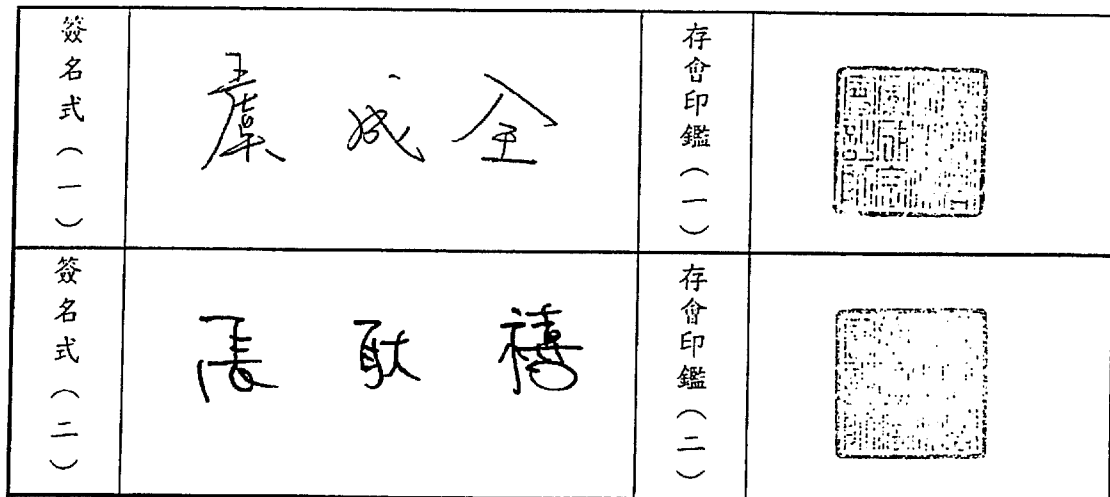 簽名式(一)
虞成全
存會印鑑(一)
簽名式(二)
耿禧
存會印鑑(二)